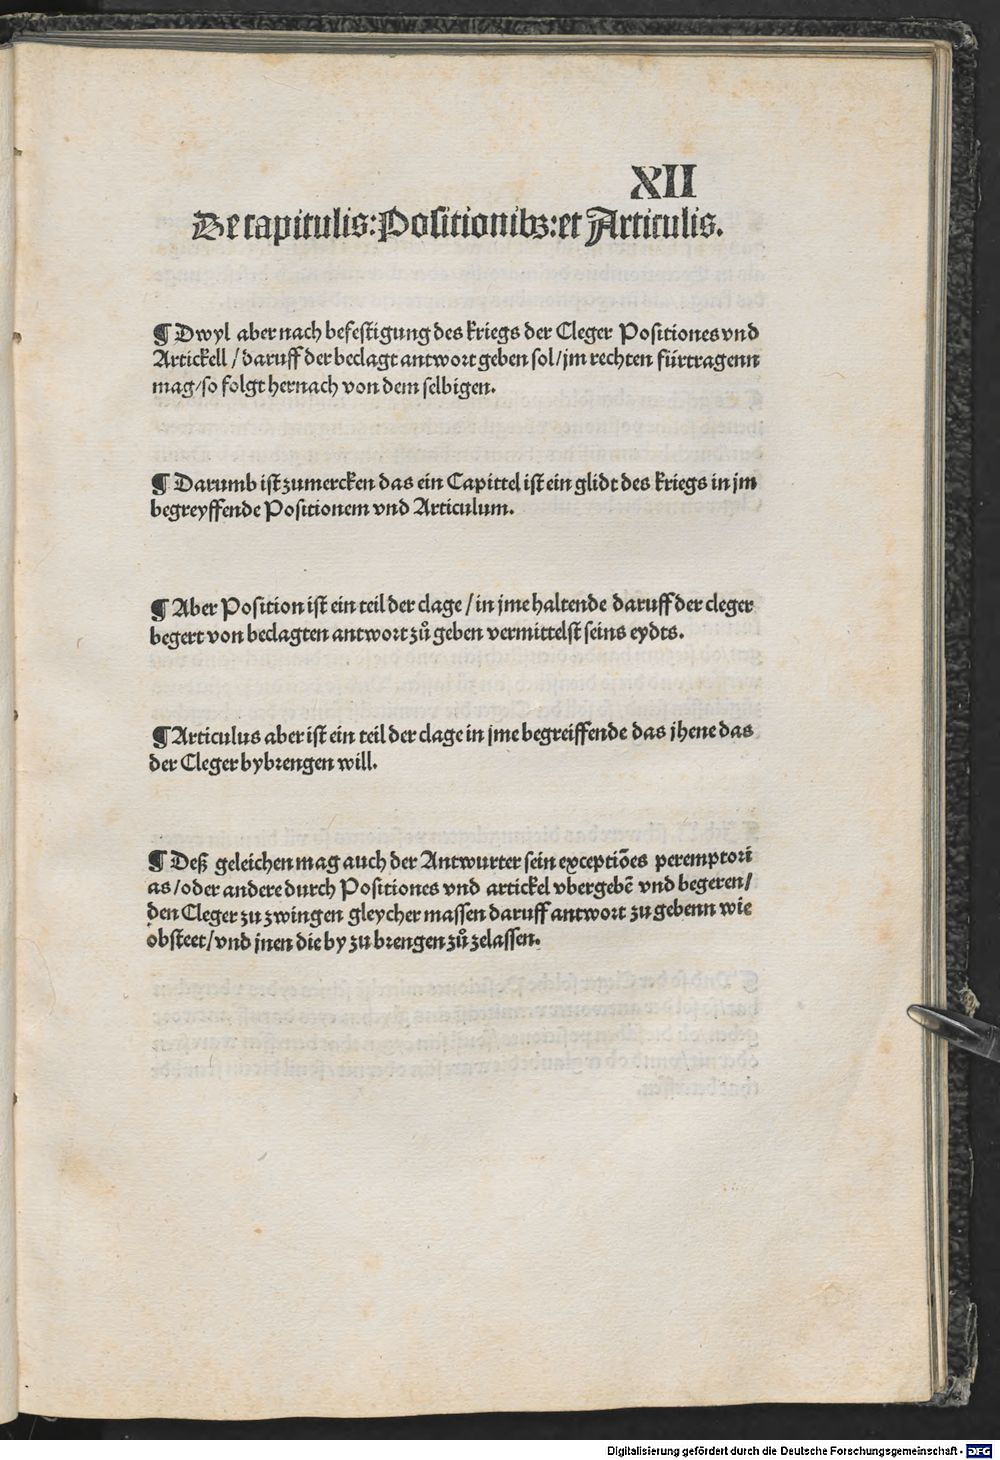 XII
De capitulis: Positionibꝫ: et Articulis.
¶ Dwyl aber nach befestigung des kriegs der Cleger Positiones vnd
Artickell / daruff der beclagt antwort geben sol / jm rechten fürtragenn
mag / so folgt hernach von dem selbigen.
¶ Darumb ist zumercken das ein Capittel ist ein glidt des kriegs in jm
begreyffende Positionem vnd Articulum.
¶ Aber Position ist ein teil der clage / in jme haltende daruff der cleger
begert von beclagten antwort zů geben vermittelst seins eydts.
¶ Articulus aber ist ein teil der clage in jme begreiffende das jhene das
der Cleger bybrengen will.
¶ Deß geleichen mag auch der Antwurter sein exceptiões peremptori
as / oder andere durch Positiones vnd artickel vbergebē vnd begeren /
den Cleger zu zwingen gleycher massen daruff antwort zu gebenn wie
obsteet / vnd jnen die by zu brengen zů zelassen.
Digitalisierung gefördert durch die Deutsche Forschungsgemeinschaft - DFG